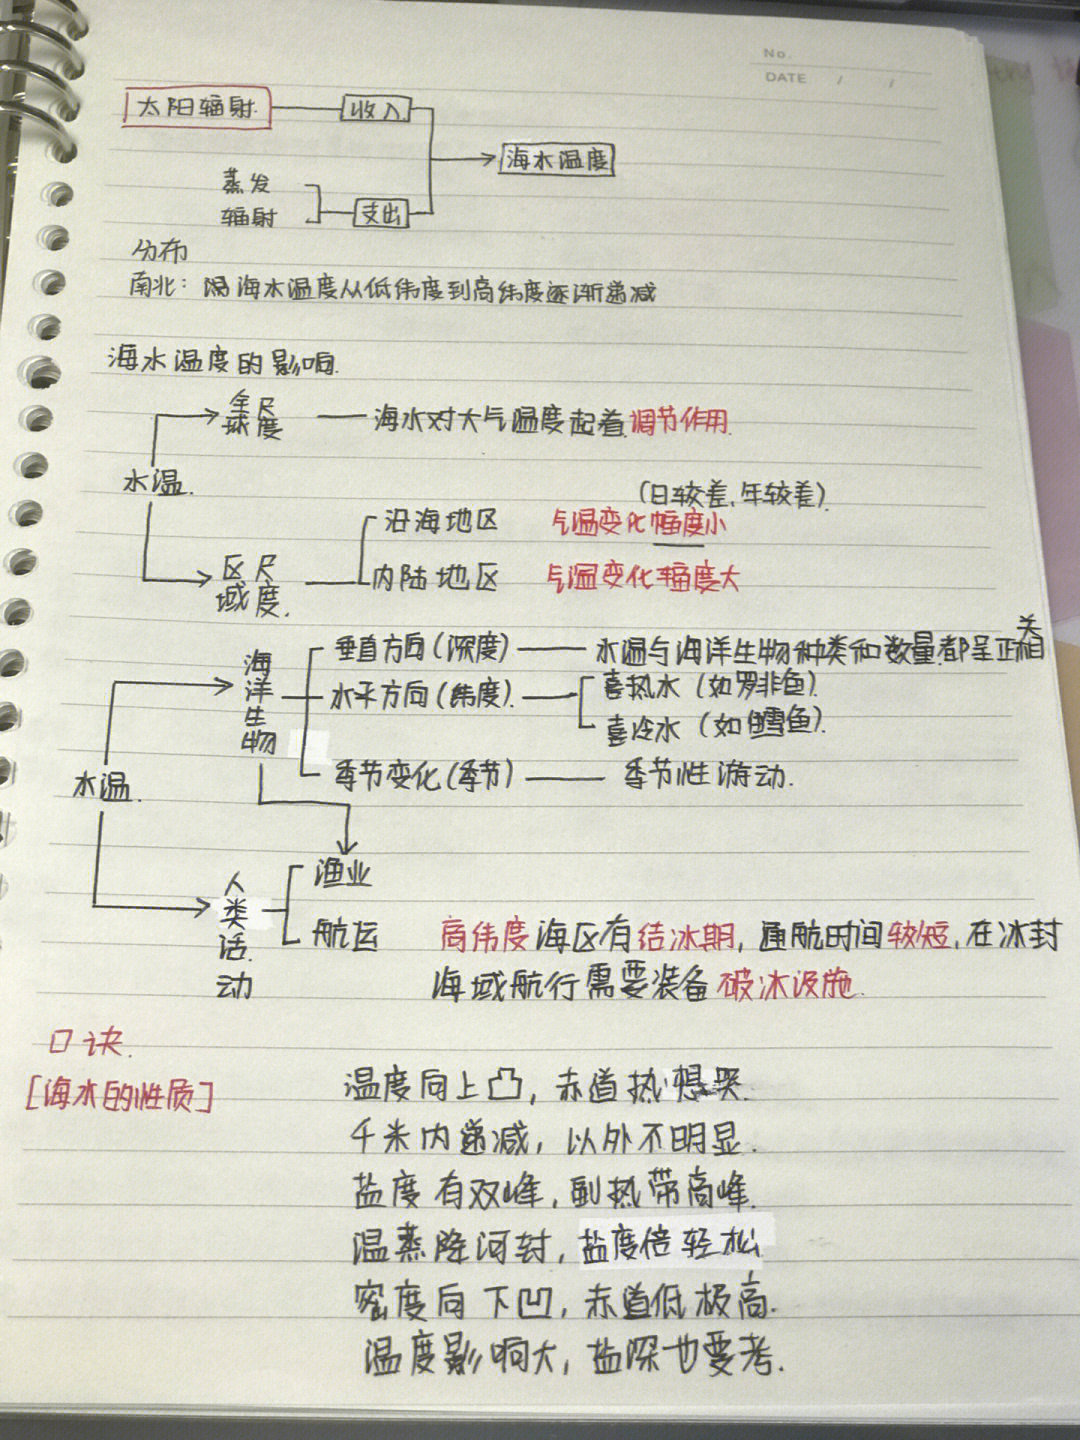 No.
DATE / /
太阳辐射. 收入
海水温度
蒸发
辐射 支出
分布
南北: 海水温度从低纬度到高纬度逐渐递减
海水温度的影响.
全球尺度 海水对大气温度起着调节作用.
水温.
(日较差、年较差).
沿海地区 气温变化幅度小
区域尺度. 内陆地区 气温变化幅度大
海洋生物 垂直方向(深度) 水温与海洋生物种类和数量都呈正相关
水平方向(纬度). 喜热水 (如罗非鱼).
喜冷水 (如鳕鱼).
水温. 季节变化(季节) 季节性游动.
渔业
人类活动 航运 高纬度海区有结冰期, 通航时间较短, 在冰封
海域航行需要装备破冰设施.
口诀.
[海水的性质]
温度向上凸, 赤道热想哭.
千米内递减, 以外不明显.
盐度有双峰, 副热带高峰.
温蒸降河封, 盐度倍轻松
密度向下凹, 赤道低极高.
温度影响大, 盐深也要考.